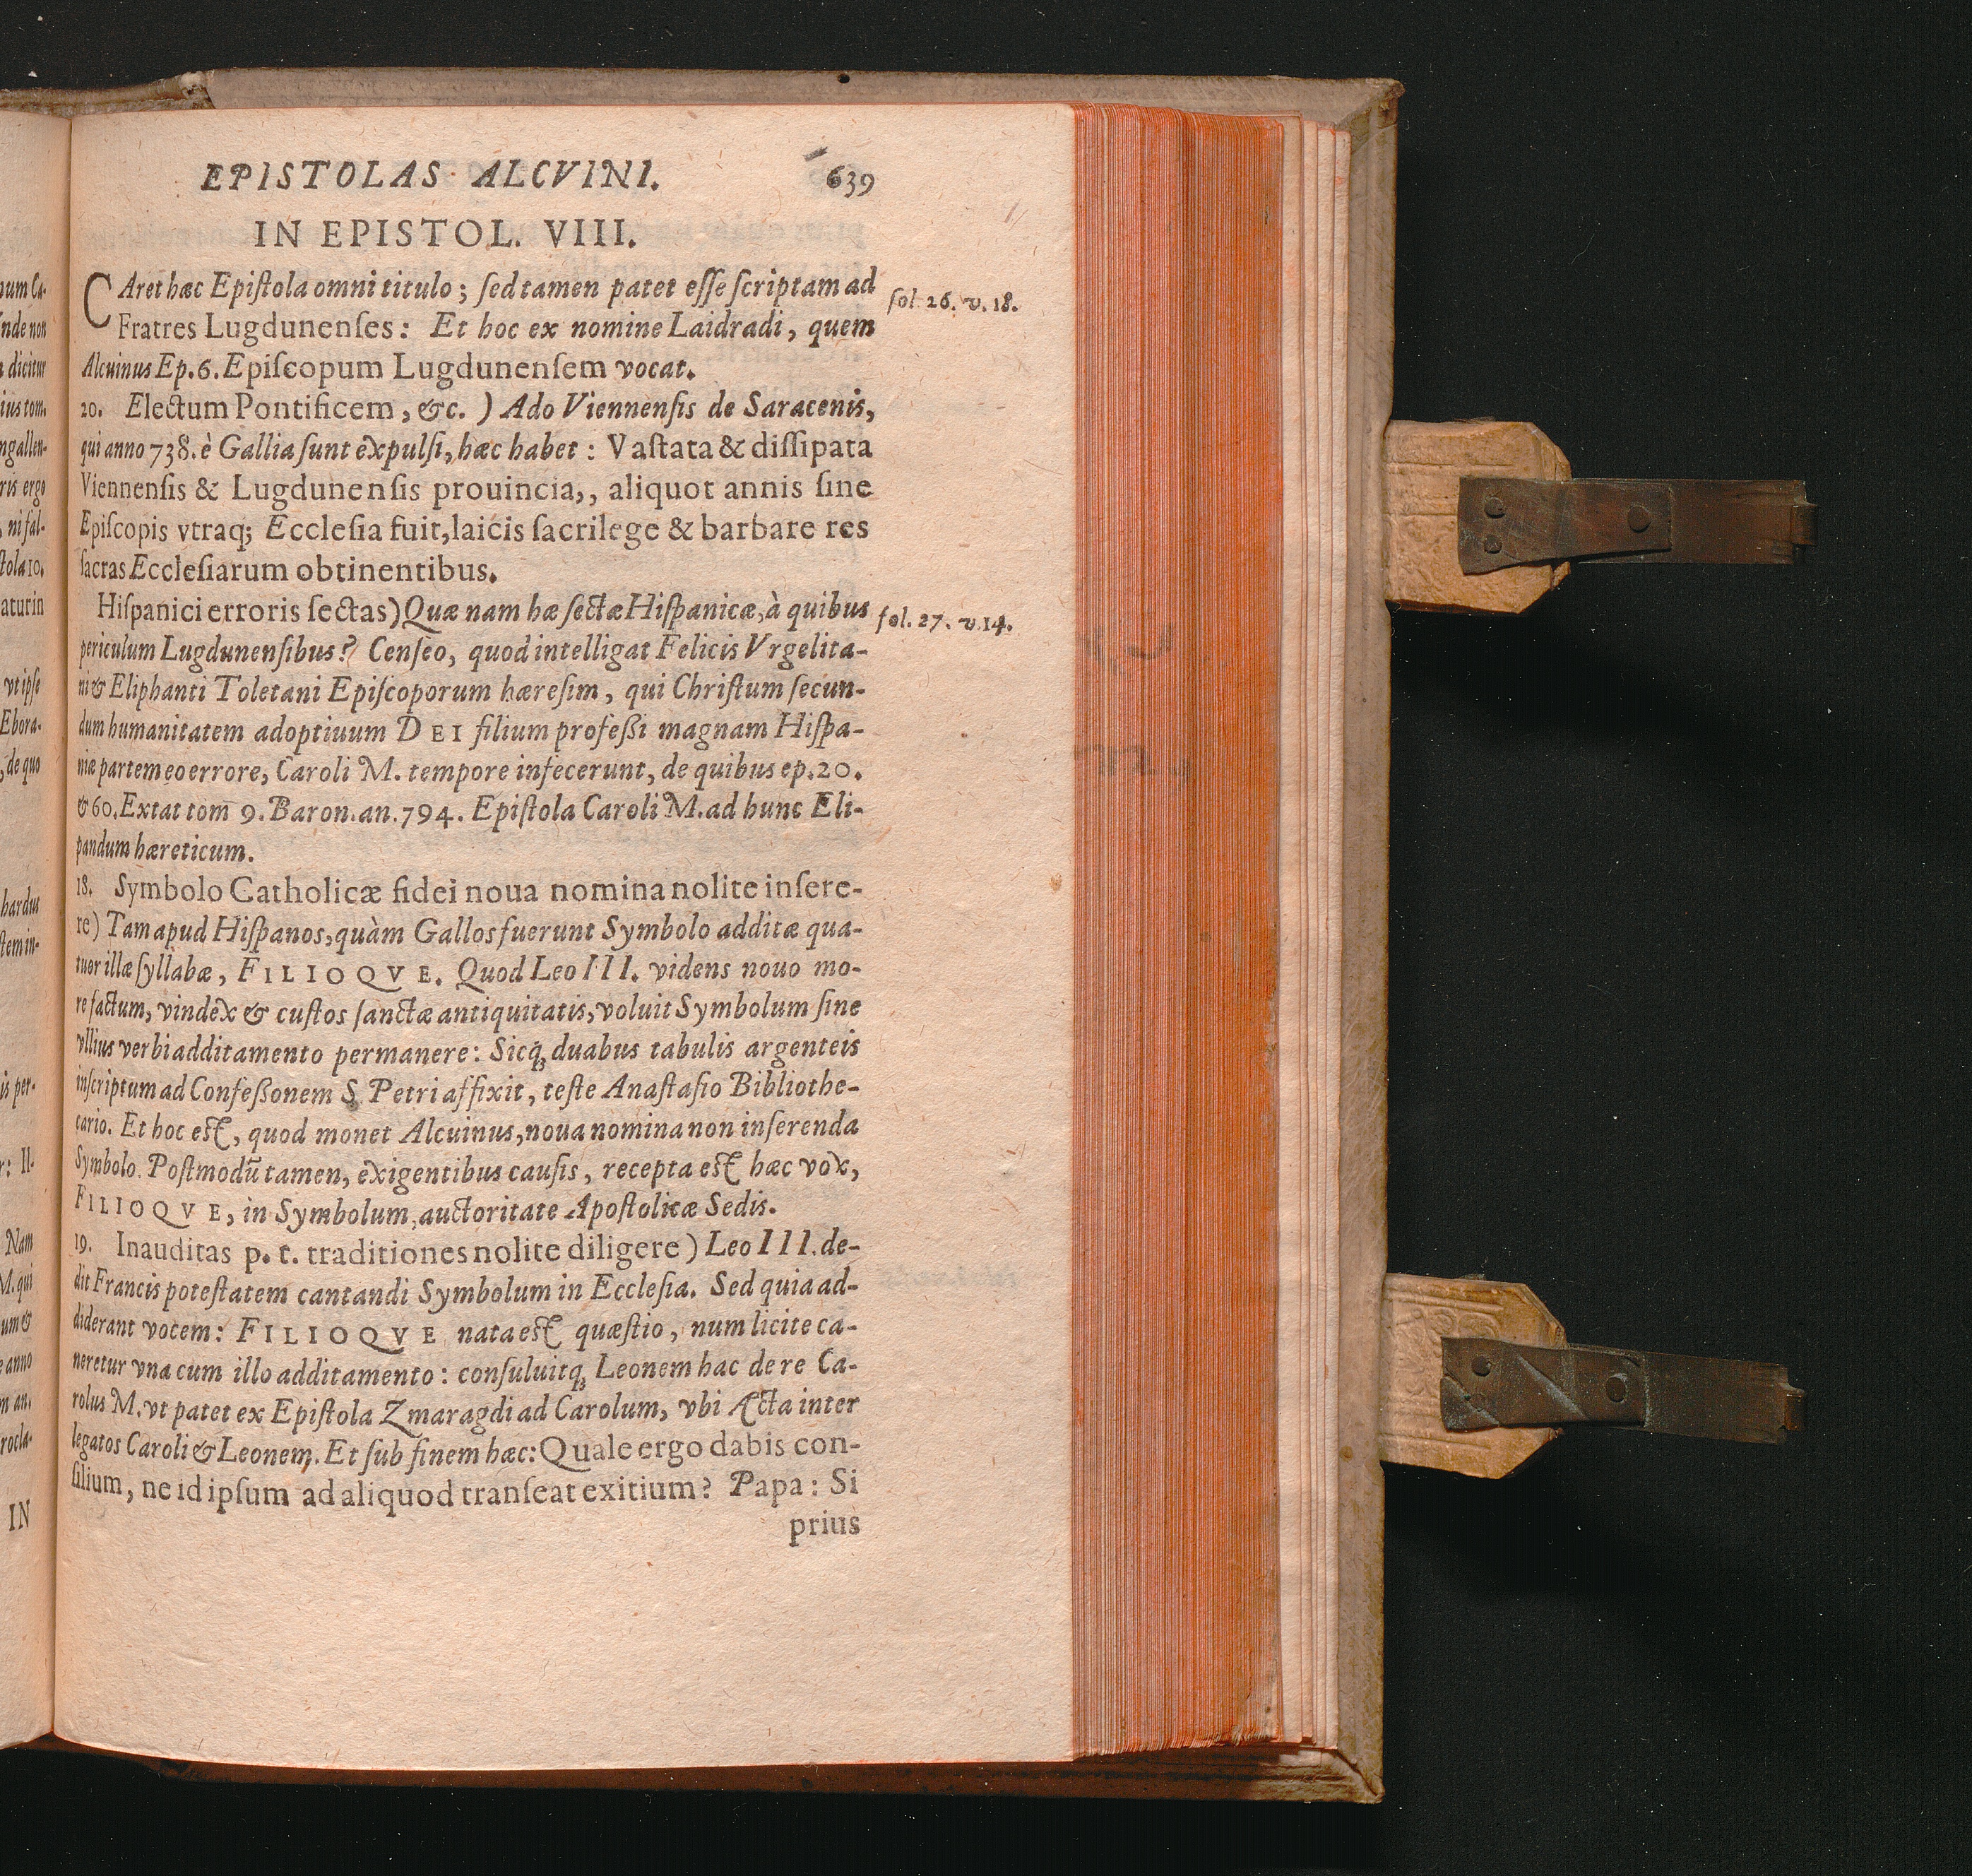 EPISTOLAS ALCVINI. 639
IN EPISTOL. VIII.
CAret hæc Epiſtola omni titulo; ſed tamen patet eſſe ſcriptam ad
fol. 26. v. 18.
Fratres Lugdunenſes: Et hoc ex nomine Laidradi, quem
Alcuinus Ep. 6. Epiſcopum Lugdunenſem vocat.
20. Electum Pontificem, &c. ) Ado Viennenſis de Saracenis,
qui anno 738. è Gallia ſunt expulſi, hæc habet: Vaſtata & diſſipata
Viennenſis & Lugdunenſis prouincia,, aliquot annis ſine
Epiſcopis vtraq; Eccleſia fuit, laicis ſacrilege & barbare res
ſacras Eccleſiarum obtinentibus.
Hiſpanici erroris ſectas) Quæ nam hæ ſectæ Hiſpanicæ, à quibus
fol. 27. v. 14.
periculum Lugdunenſibus? Cenſeo, quod intelligat Felicis Vrgelita-
ni & Eliphanti Toletani Epiſcoporum hæreſim, qui Chriſtum ſecun-
dum humanitatem adoptiuum DEI filium profeßi magnam Hiſpa-
niæ partem eo errore, Caroli M. tempore infecerunt, de quibus ep. 20.
& 60. Extat tom 9. Baron. an. 794. Epiſtola Caroli M. ad hunc Eli-
pandum hæreticum.
18. Symbolo Catholicæ fidei noua nomina nolite inſere-
re) Tam apud Hiſpanos, quàm Gallos fuerunt Symbolo additæ qua-
tuor illæ ſyllabæ, FILIOQVE. Quod Leo III. videns nouo mo-
re factum, vindex & cuſtos ſanctæ antiquitatis, voluit Symbolum ſine
vllius verbi additamento permanere: Sicq́; duabus tabulis argenteis
inſcriptum ad Confeßonem S. Petri affixit, teſte Anaſtaſio Bibliothe-
cario. Et hoc eſt, quod monet Alcuinus, noua nomina non inſerenda
Symbolo. Poſtmodū tamen, exigentibus cauſis, recepta eſt hæc vox,
FILIOQVE, in Symbolum, auctoritate Apoſtolicæ Sedis.
19. Inauditas p. t. traditiones nolite diligere) Leo III. de-
dit Francis poteſtatem cantandi Symbolum in Eccleſia. Sed quia ad-
diderant vocem: FILIOQVE nata eſt quæſtio, num licite ca-
neretur vna cum illo additamento: conſuluitq́; Leonem hac de re Ca-
rolus M. vt patet ex Epiſtola Zmaragdi ad Carolum, vbi Acta inter
legatos Caroli & Leonem. Et ſub finem hæc: Quale ergo dabis con-
ſilium, ne id ipſum ad aliquod tranſeat exitium? Papa: Si
prius